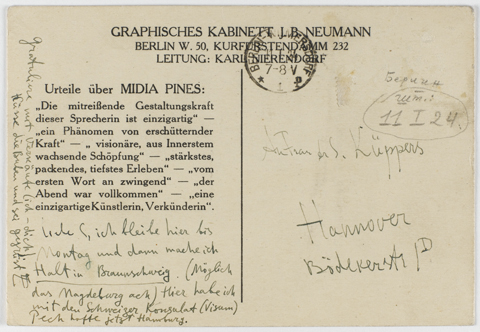 GRAPHISCHES KABINETT J.B. NEUMANN
BERLIN W. 50, KURFÜRSTENDAMM 232
LEITUNG: KARL NIERENDORF
7-8 V
Urteile über MIDIA PINES:
„Die mitreißende Gestaltungskraft
dieser Sprecherin ist einzigartig“ —
„ein Phänomen von erschütternder
Kraft“ — „ visionäre, aus Innerstem
wachsende Schöpfung“ — „stärkstes,
packendes, tiefstes Erleben“ — „vom
ersten Wort an zwingend“ — „der
Abend war vollkommen“ — „eine
einzigartige Künstlerin, Verkünderin“.
ich bleibe hier bis
Montag und dann mache ich
Halt in Braunschweig. (Möglich
das Magdeburg ach) Hier habe ich
mit den Schweizer Konsulat (Visum)
Pech hoffe jetzt Hamburg.
Берлин
11 I 24.
S. Küppers
Hannover
Bödekerstr